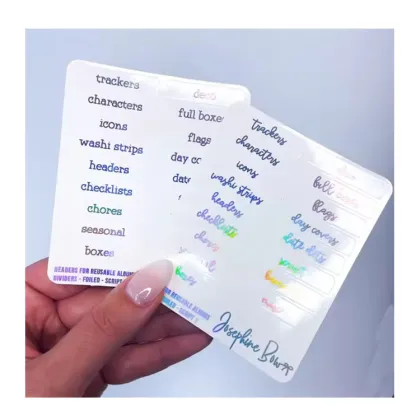 trackers
characters
icons
washi strips
headers
checklists
chores
seasonal
boxes
HEADERS FOR REUSABLE ALBUM
DIVIDERS - FOILED - SCRIPT
deco
full boxes
flags
day co
date
trackers
characters
icons
washi strips
headers
checklists
chores
boxes
full boxes
flags
day covers
date dots
script
FOR REUSABLE ALBUMS
FOILED - SCRIPT
Josephine Bow